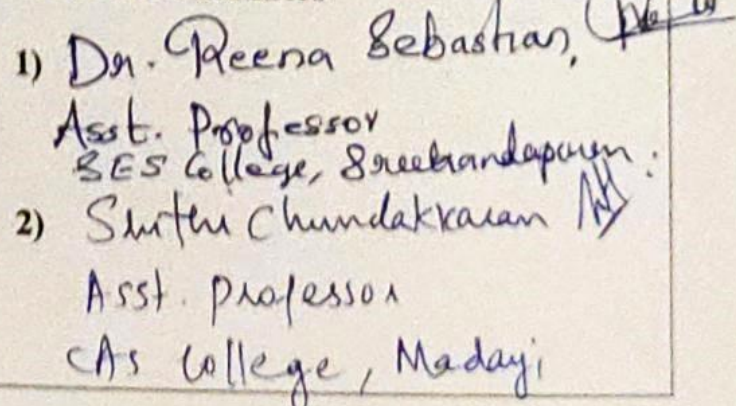 1) Dr. Reena Sebastian,
Asst. Professor
SES College, Sreekandapuram.
2) Shithi Chundakkaran
Asst. Professor
CAS College, Madayi